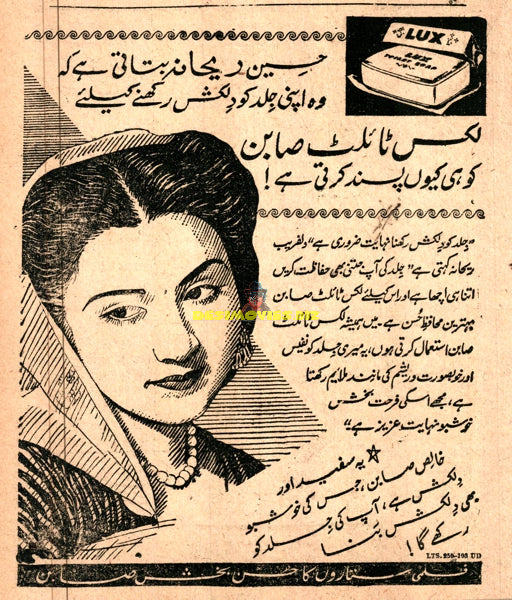 LUX
LUX
TOILET SOAP
حسین ریحانہ بتاتی ہے کہ
وہ اپنی جِلد کو دِلکش رکھنے کیلئے
لکس ٹائلٹ صابن
کو ہی کیوں پسند کرتی ہے!
"جِلد کو دِلکش رکھنا نہایت ضروری ہے" دلفریب
ریحانہ کہتی ہے "جِلد کی آپ جتنی بھی حفاظت کریں
اتنا ہی اچھا ہے اور اس کیلئے لکس ٹائلٹ صابن
بہترین محافظِ حُسن ہے۔ میں ہمیشہ لکس ٹائلٹ
صابن استعمال کرتی ہوں، یہ میری جِلد کو نفیس
اور خوبصورت و ریشم کی مانند ملائم رکھتا
ہے، مجھے اسکی فرحت بخش
خوشبو نہایت عزیز ہے"
یہ سفید اور
خالص صابن، جس کی خوشبو
بھی دِلکش ہے، آپ کی جِلد کو
دِلکش بنا
رکھے گا!
LTS. 250-103 UD
فلمی ستاروں کا حسن بخش صابن